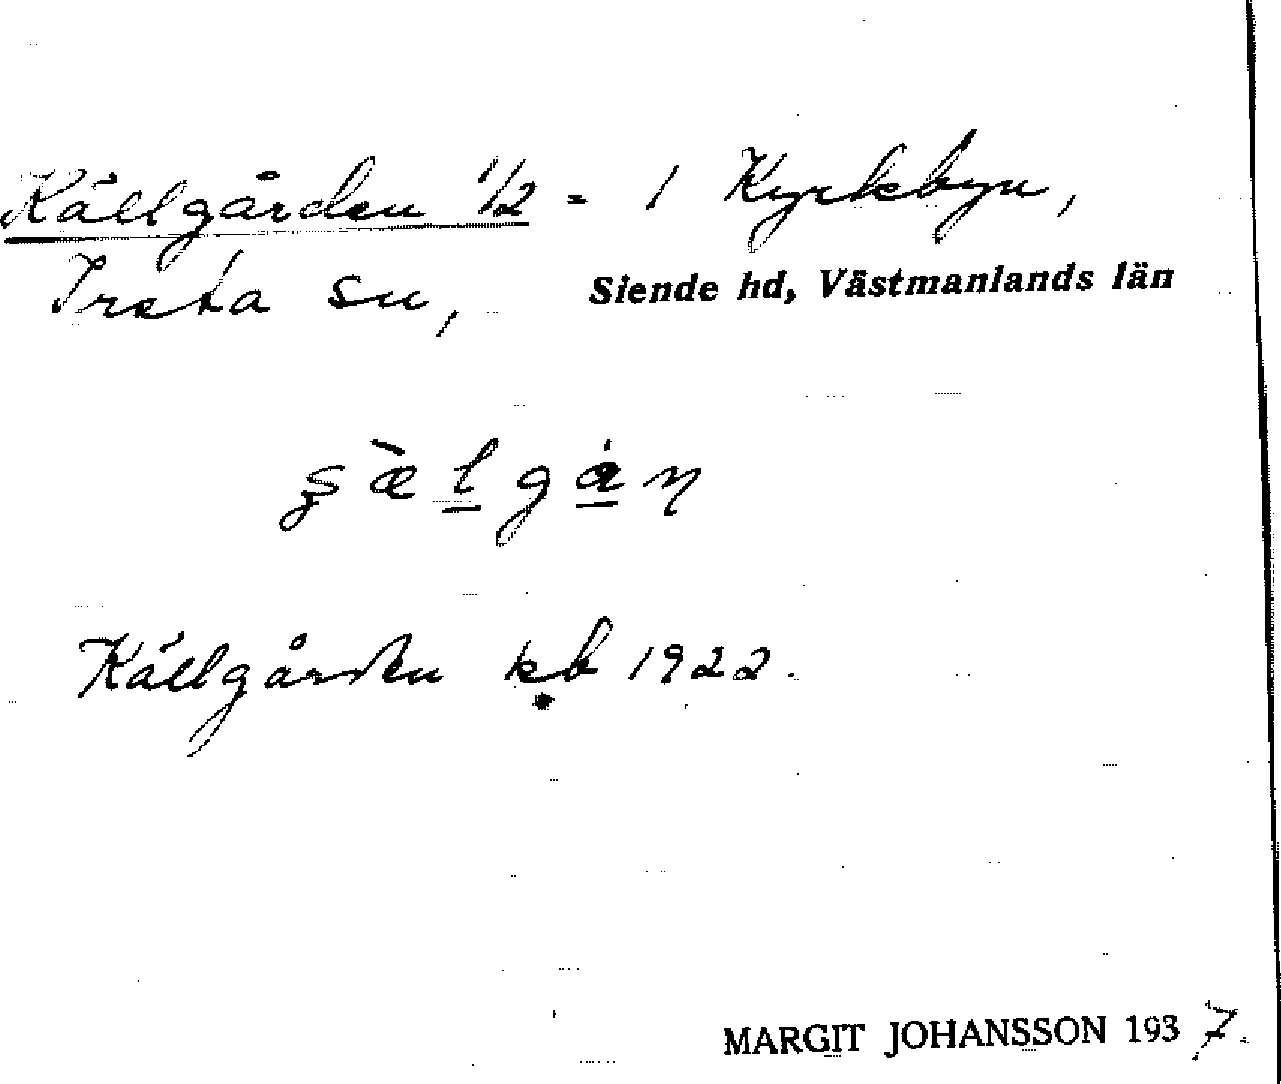 Källgården 1/2 = 1 Kyrkbyn,
Irsta sn, Siende hd, Västmanlands län
Källgården kb 1922.
MARGIT JOHANSSON 1937.